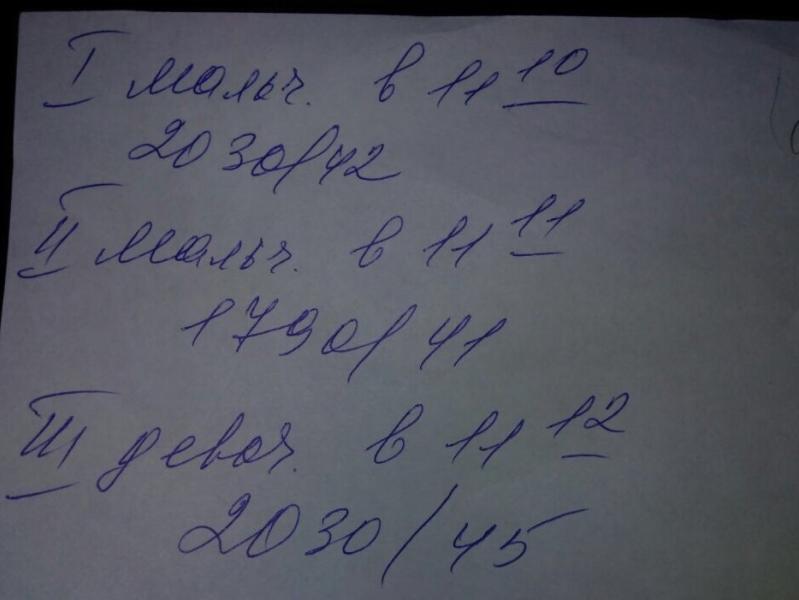 I мальч. в 11 10
2030/42
II мальч. в 11 11
1790/41
III девоч. в 11 12
2030/45